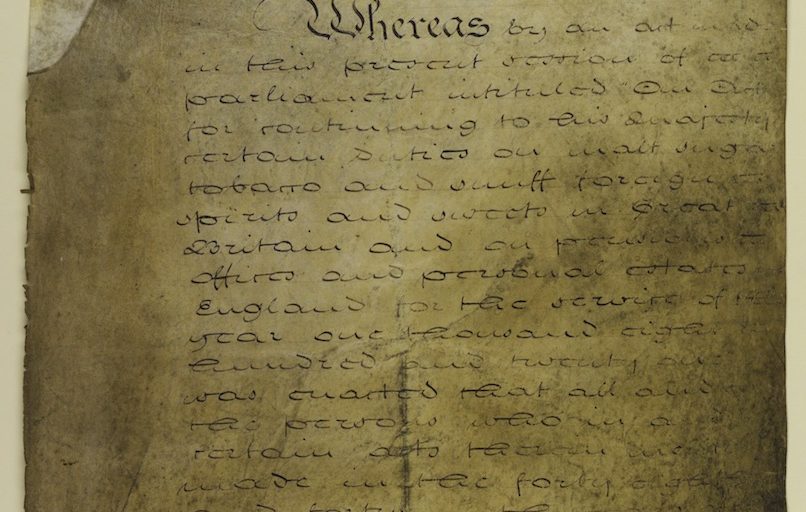 Whereas by an act made
in this present session of
parliament intituled An Act
for continuing to his Majesty
certain duties on malt sugar
tobacco and snuff foreign
spirits and sweets in Great
Britain and on pensions
offices and personal estates
England for the service of the
year one thousand eight
hundred and twenty one
was enacted that all and
the persons who in
certain acts therein
made in the forty eight
and forty